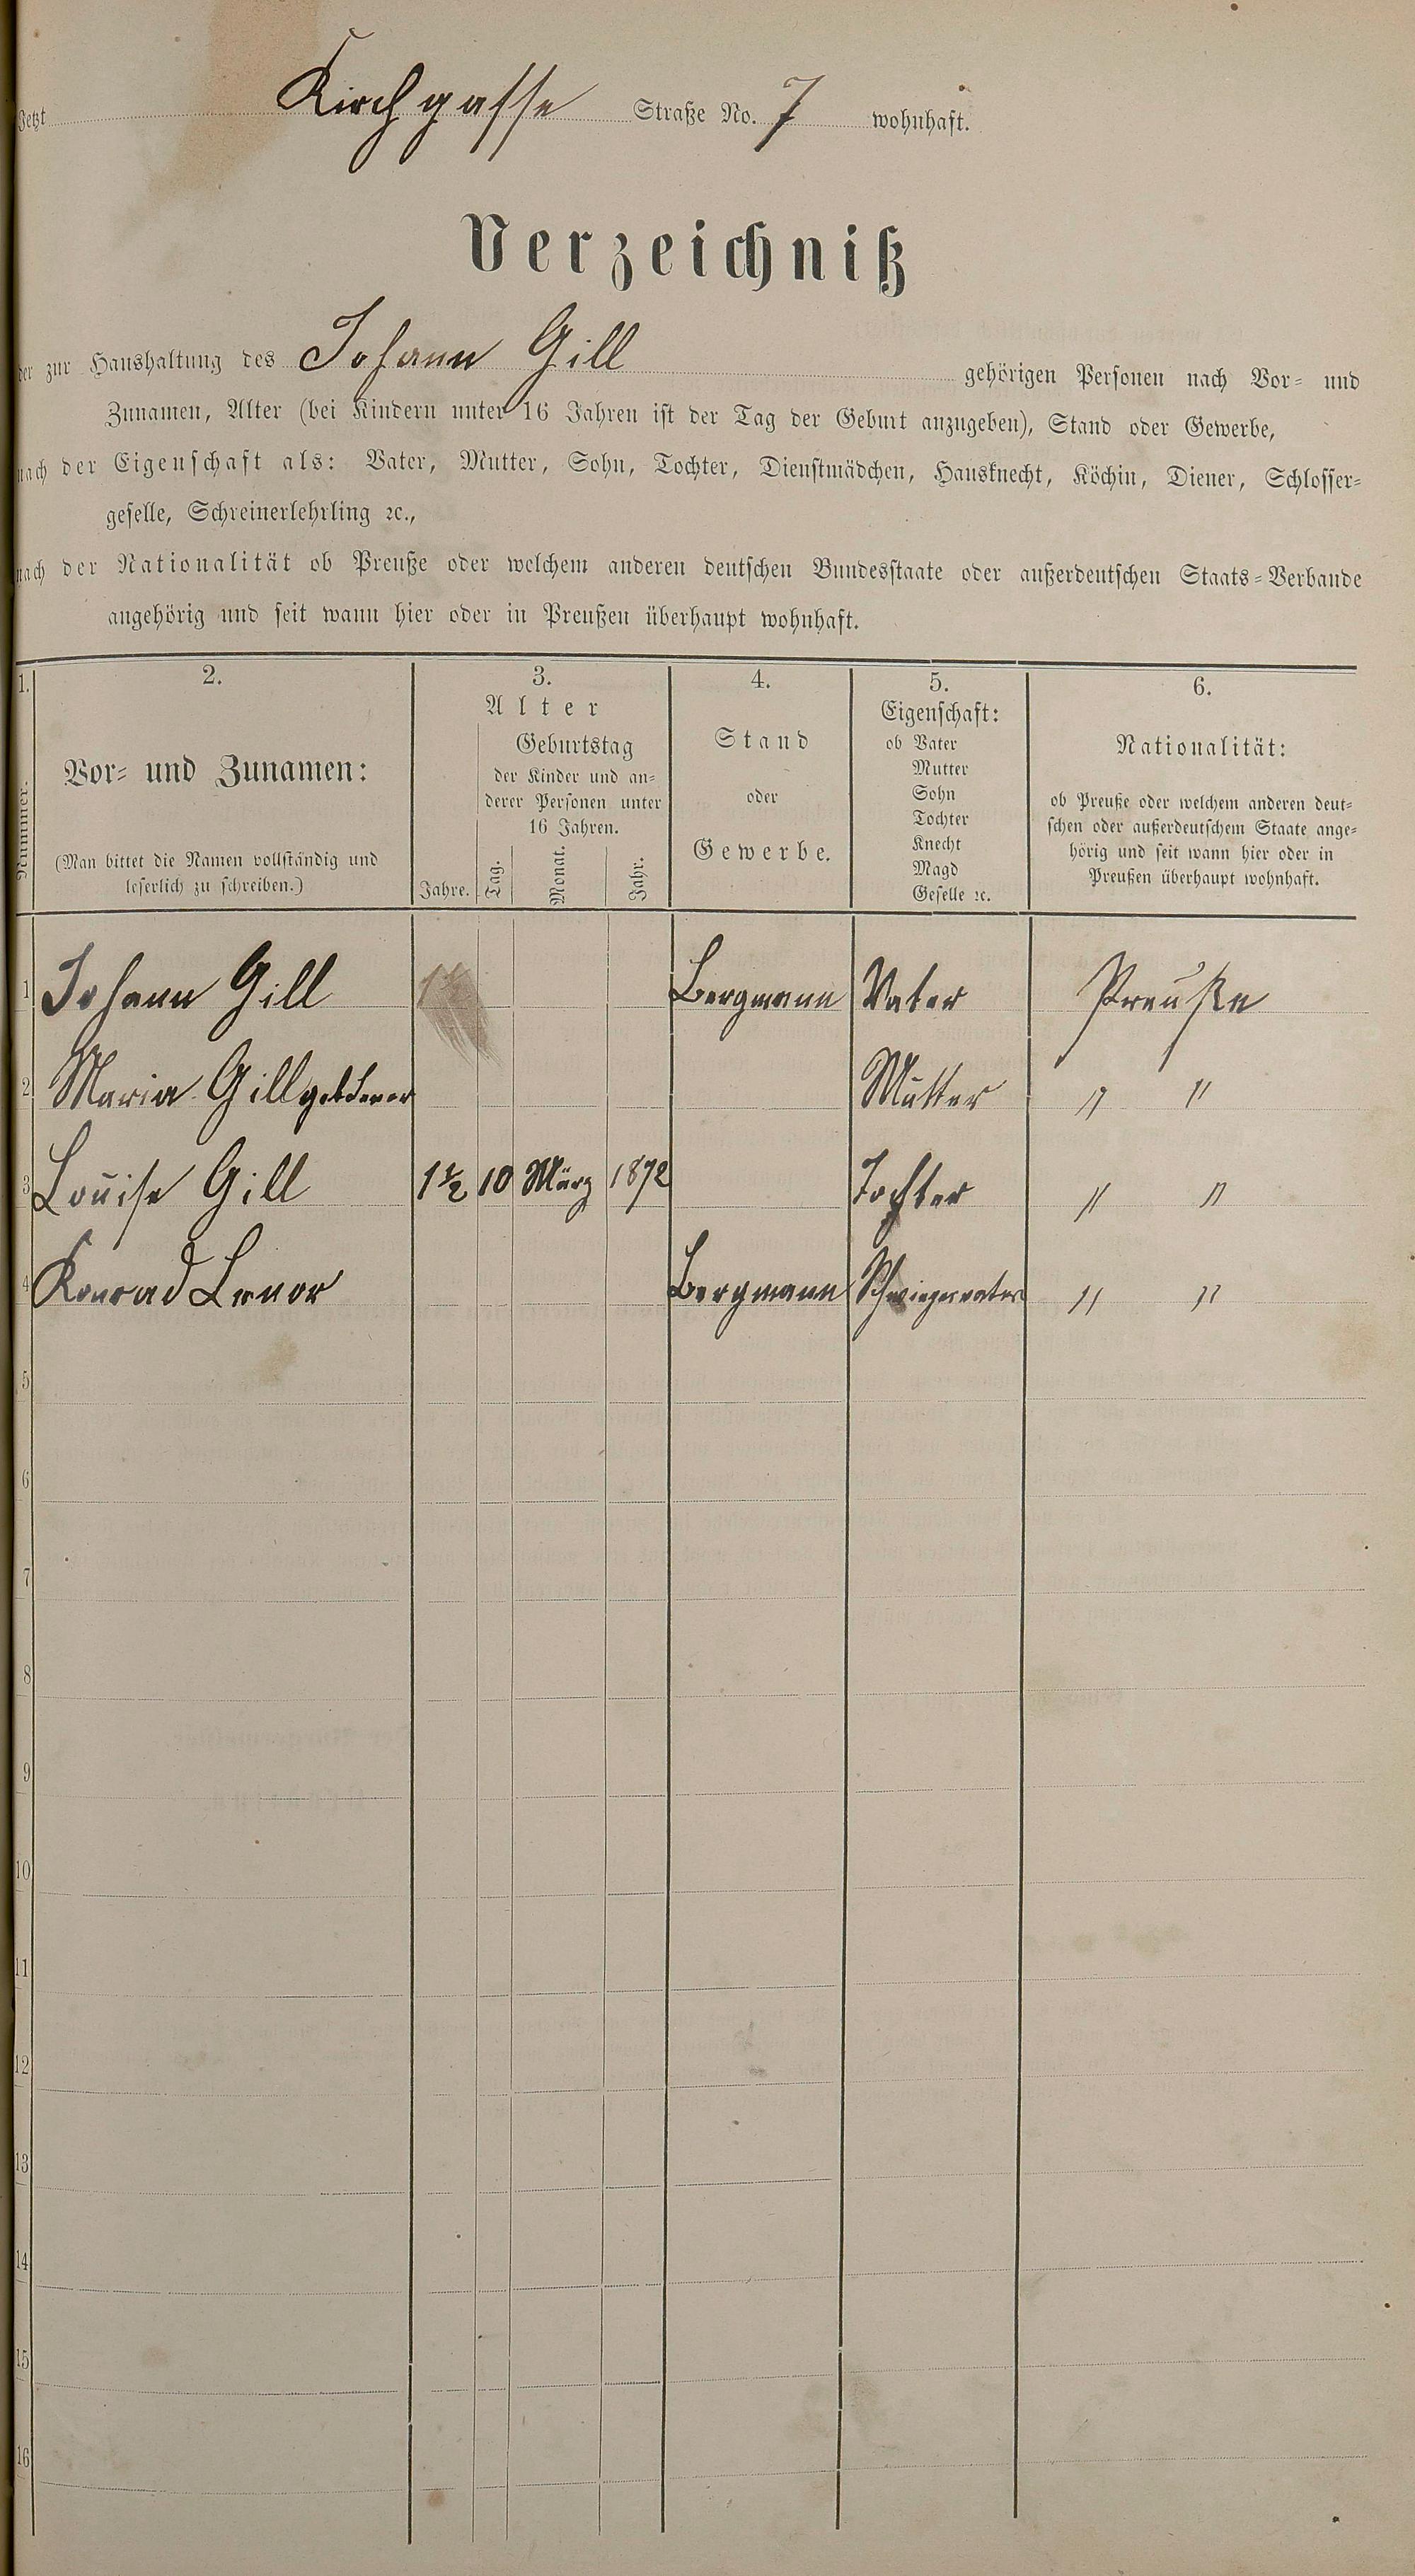 Jetzt Kirchgasse Straße No. 7 wohnhaft.
Verzeichniß
der zur Haushaltung des Johann Gill gehörigen Personen nach Vor- und
Zunamen, Alter (bei Kindern unter 16 Jahren ist der Tag der Geburt anzugeben), Stand oder Gewerbe,
nach der Eigenschaft als: Vater, Mutter, Sohn, Tochter, Dienstmädchen, Hausknecht, Köchin, Diener, Schlosser-
geselle, Schreinerlehrling ꝛc.,
nach der Nationalität ob Preuße oder welchem anderen deutschen Bundesstaate oder außerdeutschen Staats-Verbande
angehörig und seit wann hier oder in Preußen überhaupt wohnhaft.
1.
Nummer.
2.
Vor- und Zunamen:
(Man bittet die Namen vollständig und
leserlich zu schreiben.)
3.
Alter
Jahre.
Geburtstag
der Kinder und an-
derer Personen unter
16 Jahren.
Tag. Monat. Jahr.
4.
Stand
oder
Gewerbe.
5.
Eigenschaft:
ob Vater
Mutter
Sohn
Tochter
Knecht
Magd
Geselle ꝛc.
6.
Nationalität:
ob Preuße oder welchem anderen deut-
schen oder außerdeutschem Staate ange-
hörig und seit wann hier oder in
Preußen überhaupt wohnhaft.
1 Johann Gill Bergmann Vater Preuße
2 Maria Gill geb Mutter " "
3 Louise Gill 1½ 10 März 1872 Tochter " "
4 Konrad Bergmann Schwiegervater " "
5
6
7
8
9
10
11
12
13
14
15
16